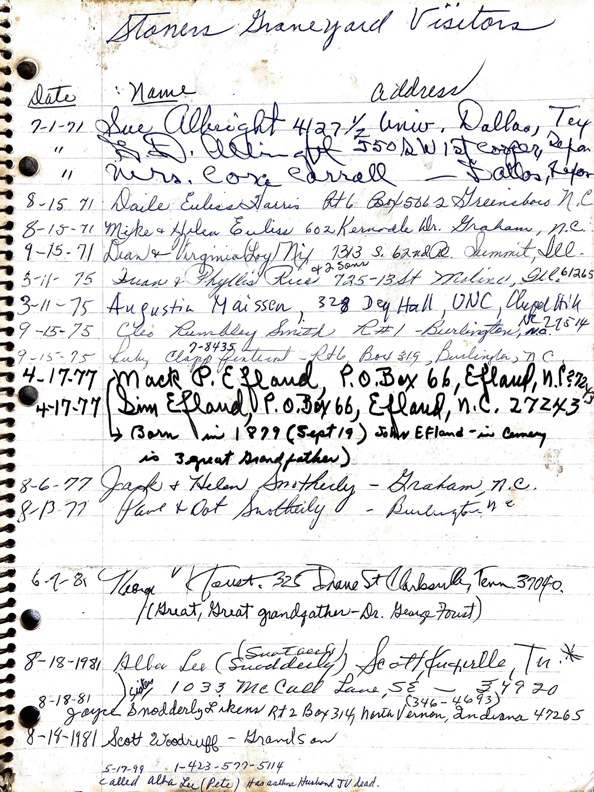 Stoners Graveyard Visitors
Date Name address
7-1-71 Sue Albright 4127 1/2 Univ. Dallas, Tex
" 550 S W 1st
" Mrs. Corroll — Dallas,
8-15 71 Daile Euliss Harris Rt 6 Box 506 2 Greensboro N.C
8-15-71 Mike & Helen Euliss 602 Kernodle Dr. Graham, N.C.
9-15-71 Dean & Virginia Loy Nix 1313 S. 62nd Summit, Ill.
& 2 Sons
3-11-75 & Phyllis Rice 725-13 St Moline, Ill. 61265
3-11-75 Augustin Maissen, 328 Dey Hall, UNC, Chapel Hill
NC 27514
9-15-75 Cleo Rumbley Smith R#1 - Burlington, N.C.
7-8435
9-15-75 Ruby Clapp - Rt 6, Box 319, Burlington, N.C.
4-17-77 Mack P. Efland, P.O. Box 66, Efland, N.C. 27243
4-17-77 Sim Efland, P.O. Box 66, Efland, N.C. 27243
↳ Born in 1879 (Sept 19) John Efland - in
is 3 great Grandfather)
8-6-77 Jack & Helen Snotherly - Graham, N.C.
8-13-77 & Dot Snotherly - Burlington N C
6-9-81 George Foust. 325 Drane St Clarksville, Tenn 37040.
(Great, Great grandfather - Dr. George Foust)
8-18-1981 Alba Lee (Snodderly) Scott Knoxville, Tn. *
Sisters 1033 McCall Lane, SE — 37920
(346-4693)
8-18-81 Joyce Snodderly Likens Rt 2 Box 314, North Vernon, Indiana 47265
8-19-1981 Scott Woodruff - Grandson
5-17-99 1-423-577-5114
Called Alba Lee (Pete) Has asthma Husband JV dead.